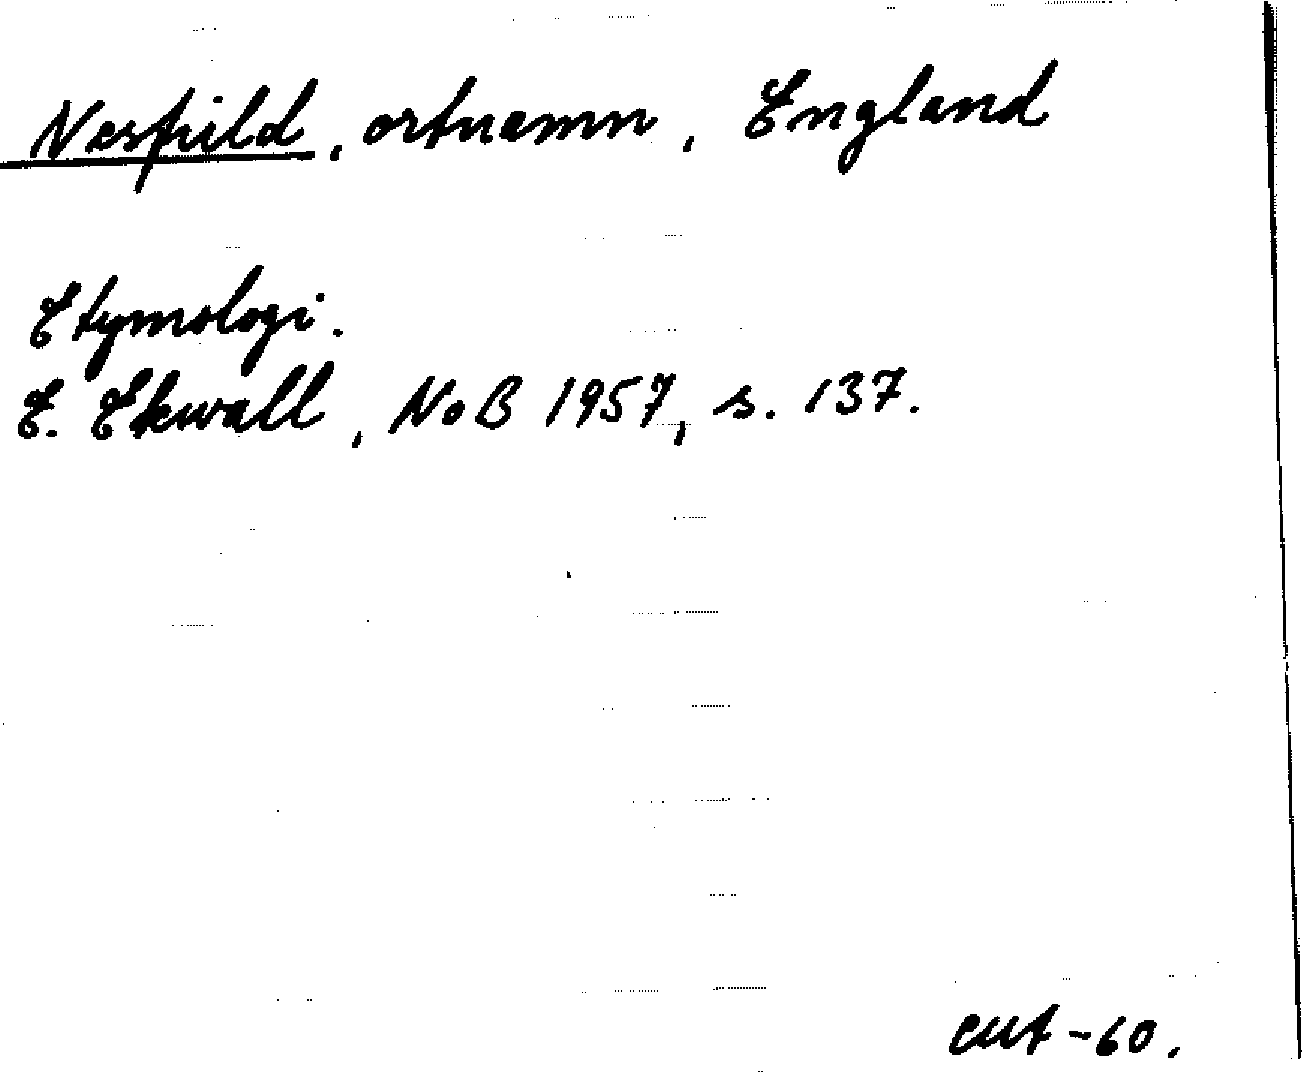 Nesfield, ortnamn, England
Etymologi.
E. Ekwall, NoB 1957, s. 137.
cut-60.